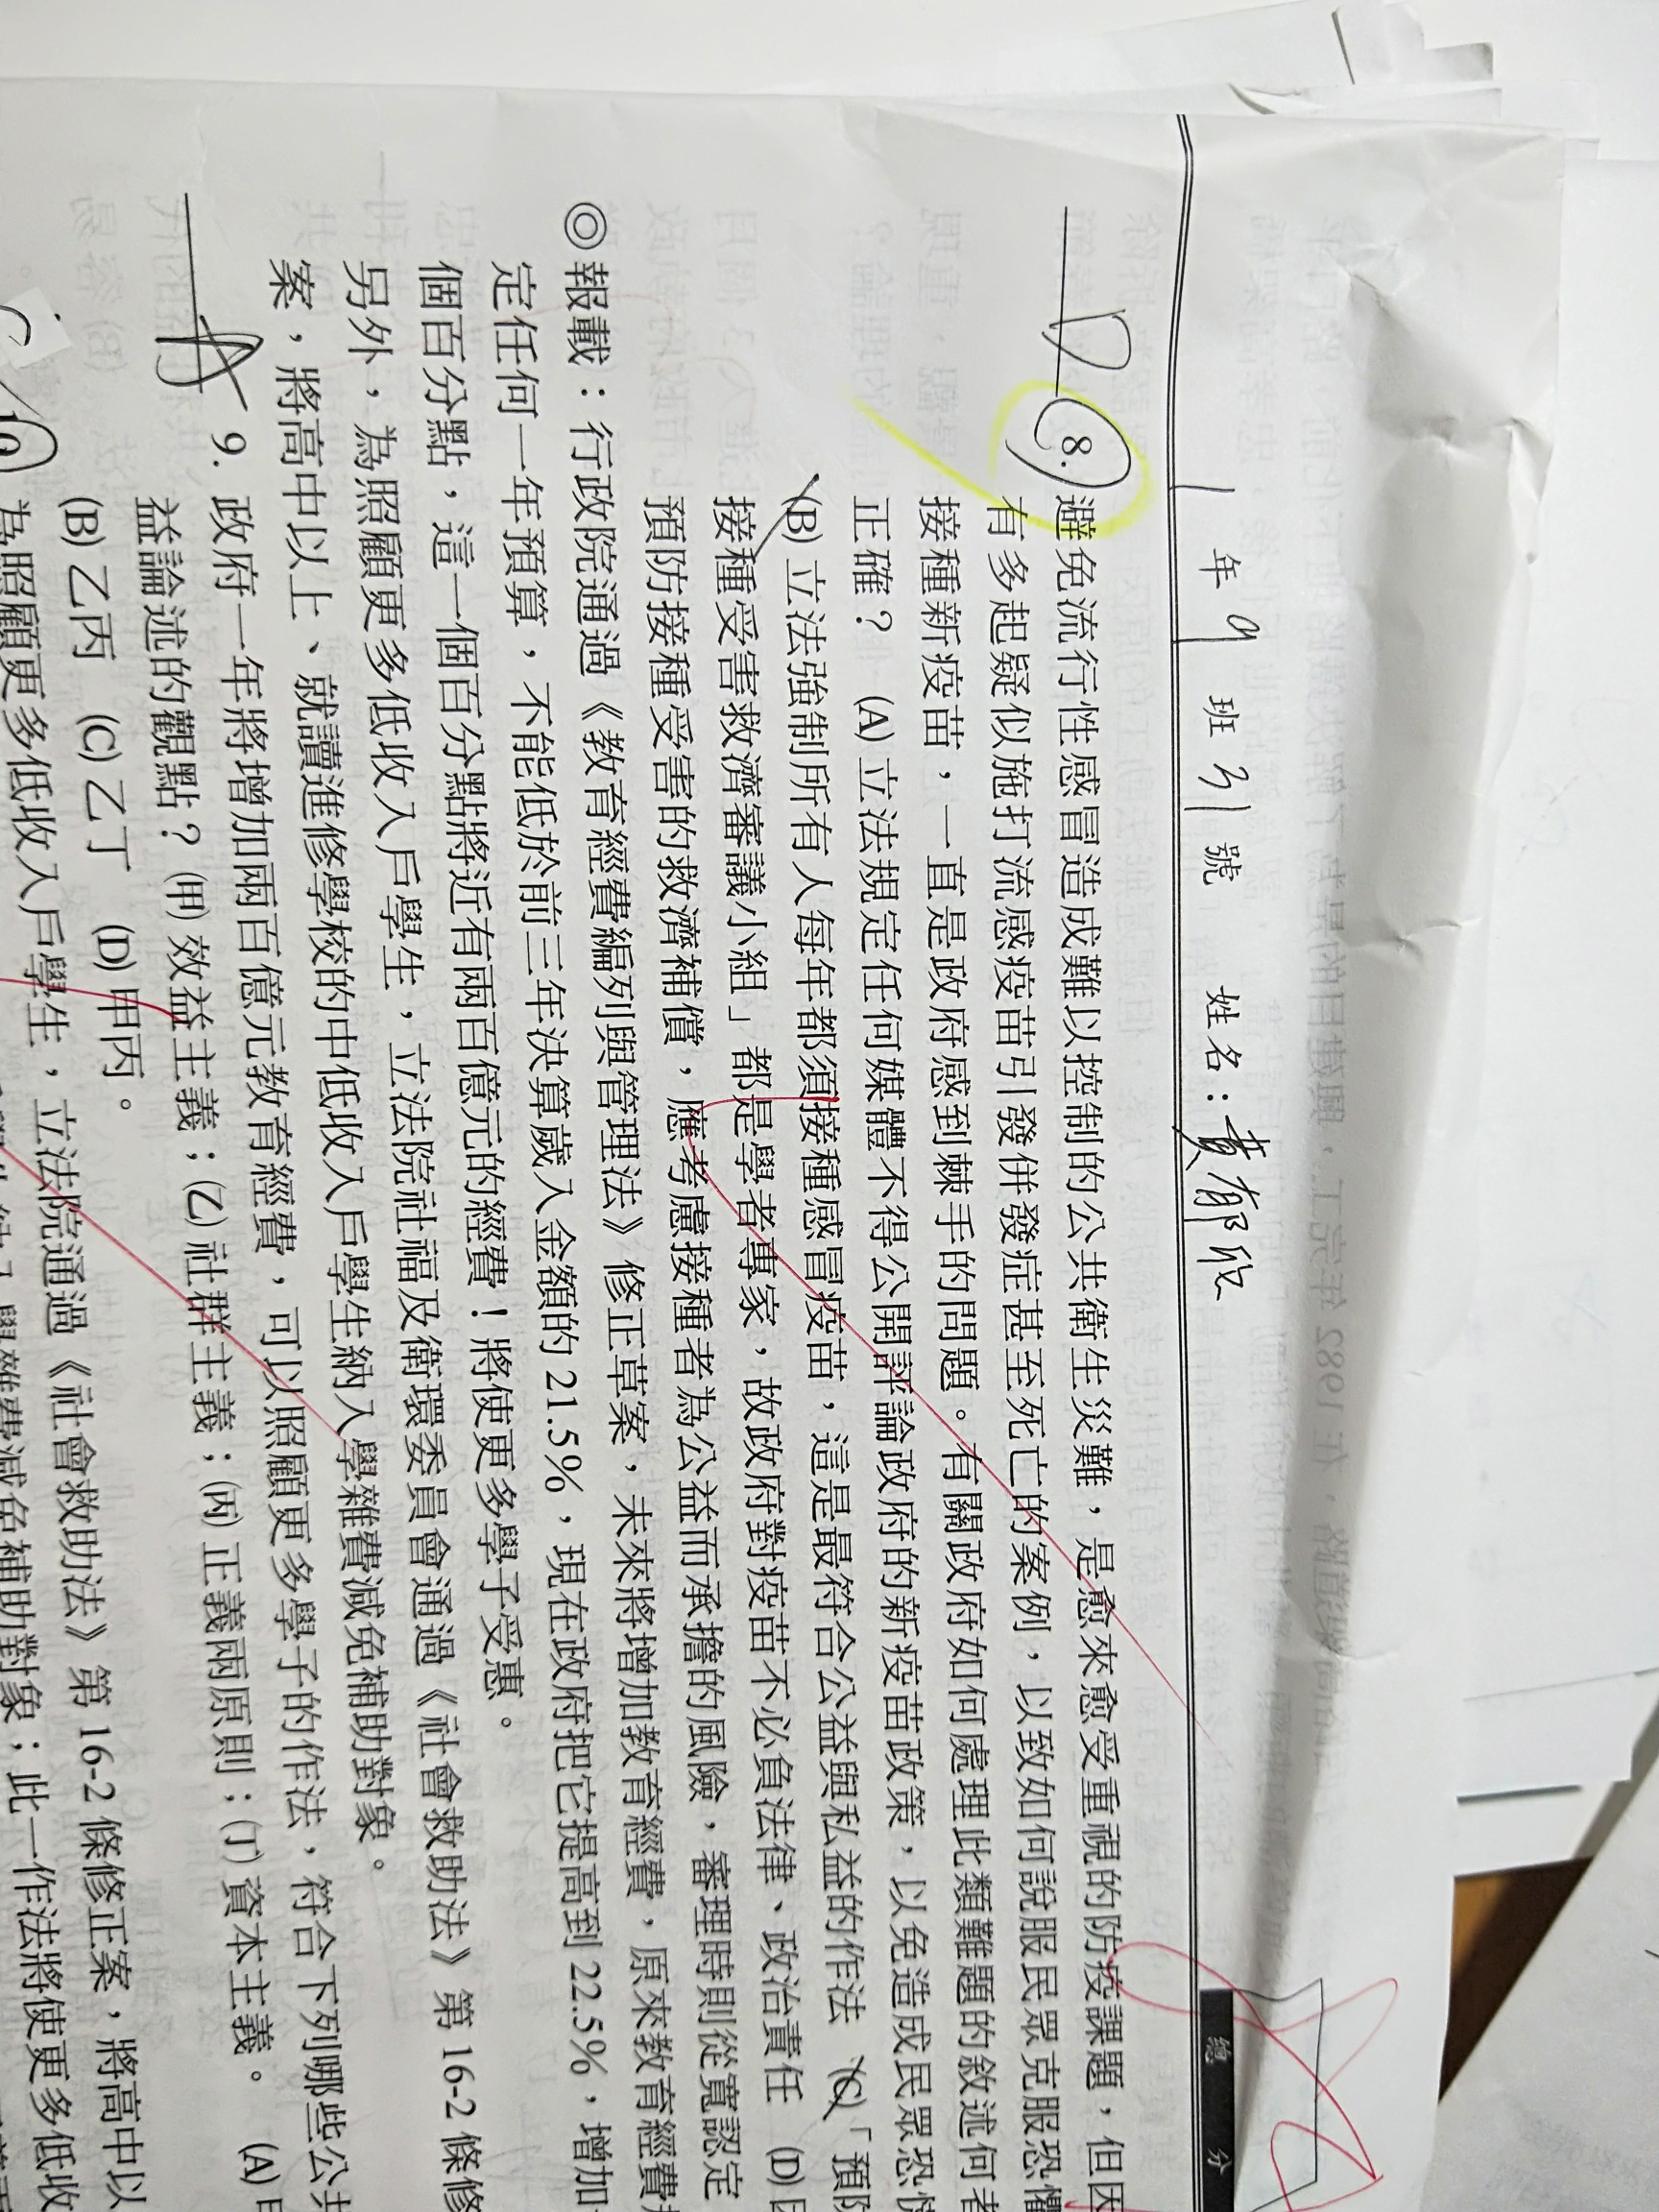 年 9 班 31 號 姓名：黃郁
總 分
D 8. 避免流行性感冒造成難以控制的公共衛生災難，是愈來愈受重視的防疫課題，但因
有多起疑似施打流感疫苗引發併發症甚至死亡的案例，以致如何說服民眾克服恐懼
接種新疫苗，一直是政府感到棘手的問題。有關政府如何處理此類難題的敘述何者
正確？ (A) 立法規定任何媒體不得公開評論政府的新疫苗政策，以免造成民眾恐慌
(B) 立法強制所有人每年都須接種感冒疫苗，這是最符合公益與私益的作法 (C)「預防
接種受害救濟審議小組」都是學者專家，故政府對疫苗不必負法律、政治責任 (D)
預防接種受害的救濟補償，應考慮接種者為公益而承擔的風險，審理時則從寬認定
◎報載：行政院通過《教育經費編列與管理法》修正草案，未來將增加教育經費，原來教育經費
定任何一年預算，不能低於前三年決算歲入金額的 21.5%，現在政府把它提高到 22.5%，增加
個百分點，這一個百分點將近有兩百億元的經費！將使更多學子受惠。
另外，為照顧更多低收入戶學生，立法院社福及衛環委員會通過《社會救助法》第 16-2 條修
案，將高中以上、就讀進修學校的中低收入戶學生納入學雜費減免補助對象。
A 9. 政府一年將增加兩百億元教育經費，可以照顧更多學子的作法，符合下列哪些公共
益論述的觀點？ (甲) 效益主義；(乙) 社群主義；(丙) 正義兩原則；(丁) 資本主義。 (A)
(B) 乙丙 (C) 乙丁 (D) 甲丙。
C 10 為照顧更多低收入戶學生，立法院通過《社會救助法》第 16-2 條修正案，將高中以
學雜費減免補助對象；此一作法將使更多低收